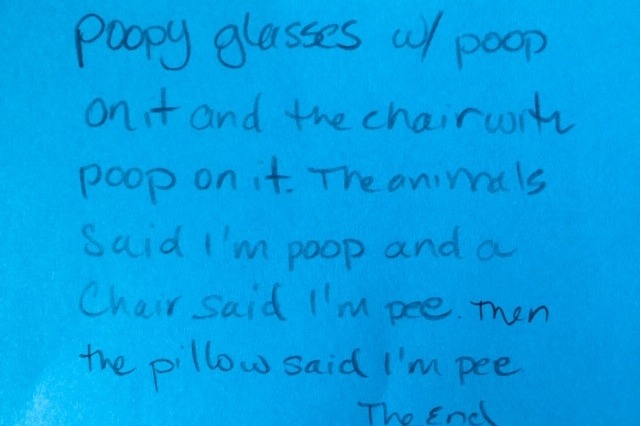 Poopy glasses w/ poop
on it and the chair with
poop on it. The animals
said I'm poop and a
Chair said I'm pee. Then
the pillow said I'm pee
The End